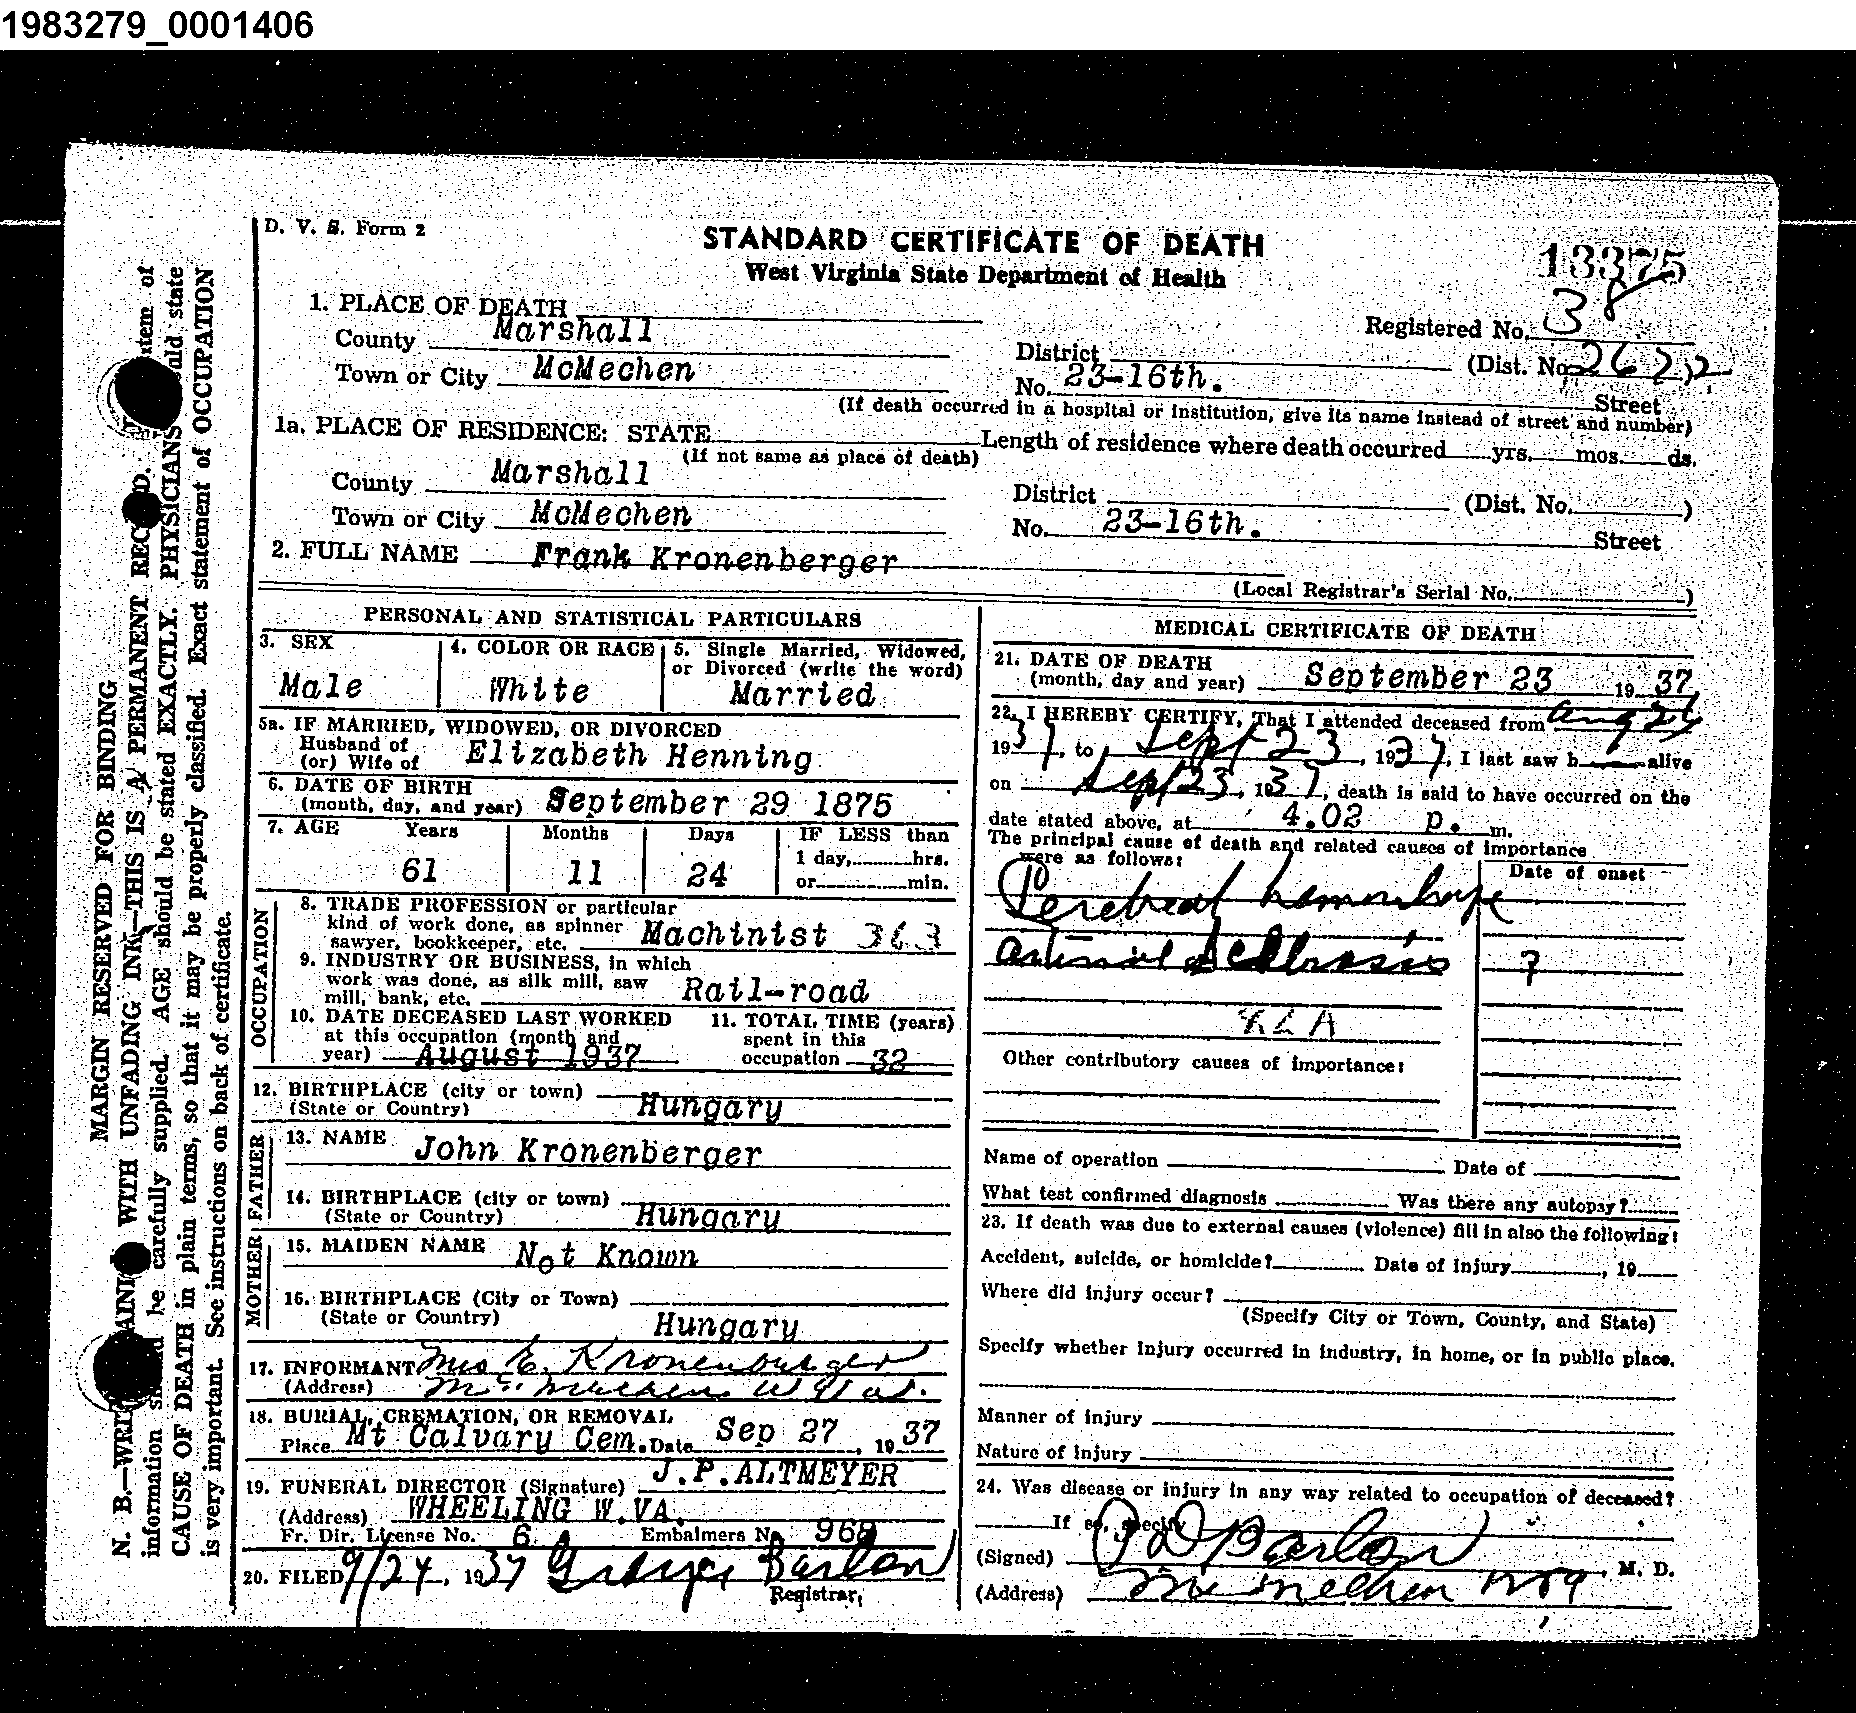 1983279_0001406
D. V. S. Form 2
STANDARD CERTIFICATE OF DEATH
West Virginia State Department of Health
13375
1. PLACE OF DEATH
Registered No. 38
County Marshall
District (Dist. No. 2622
Town or City McMechen
No. 23-16th. Street
(If death occurred in a hospital or institution, give its name instead of street and number)
1a. PLACE OF RESIDENCE: STATE
(If not same as place of death)
Length of residence where death occurred yrs. mos. ds.
County Marshall
District (Dist. No. )
Town or City McMechen
No. 23-16th. Street
2. FULL NAME Frank Kronenberger
(Local Registrar's Serial No. )
PERSONAL AND STATISTICAL PARTICULARS
3. SEX
Male
4. COLOR OR RACE
White
5. Single Married, Widowed,
or Divorced (write the word)
Married
5a. IF MARRIED, WIDOWED, OR DIVORCED
Husband of
(or) Wife of Elizabeth Henning
6. DATE OF BIRTH
(month, day, and year) September 29 1875
7. AGE Years Months Days IF LESS than
1 day, hrs.
61 11 24 or min.
OCCUPATION
8. TRADE PROFESSION or particular
kind of work done, as spinner
sawyer, bookkeeper, etc. Machinist 363
9. INDUSTRY OR BUSINESS, in which
work was done, as silk mill, saw
mill, bank, etc. Rail-road
10. DATE DECEASED LAST WORKED
at this occupation (month and
year) August 1937
11. TOTAL TIME (years)
spent in this
occupation 32
12. BIRTHPLACE (city or town)
(State or Country) Hungary
FATHER
13. NAME John Kronenberger
14. BIRTHPLACE (city or town)
(State or Country) Hungary
MOTHER
15. MAIDEN NAME Not Known
16. BIRTHPLACE (City or Town)
(State or Country) Hungary
17. INFORMANT Mrs E. Kronenburger
(Address) McMechen W Va.
18. BURIAL, CREMATION, OR REMOVAL
Place Mt Calvary Cem. Date Sep 27, 1937
19. FUNERAL DIRECTOR (Signature) J.P.ALTMEYER
(Address) WHEELING W.VA.
Fr. Dir. License No. 6 Embalmers No. 968
20. FILED 9/24, 1937 Barlow
Registrar,
MEDICAL CERTIFICATE OF DEATH
21. DATE OF DEATH
(month, day and year) September 23 1937
22. I HEREBY CERTIFY, That I attended deceased from Aug 26
1937, to Sept 23, 1937, I last saw h alive
on Sept 23, 1937, death is said to have occurred on the
date stated above, at 4.02 p. m.
The principal cause of death and related causes of importance
were as follows:
Date of onset
Cerebral hemorrhage
arterial sclerosis ?
82A
Other contributory causes of importance:
Name of operation Date of
What test confirmed diagnosis Was there any autopsy?
23. If death was due to external causes (violence) fill in also the following:
Accident, suicide, or homicide? Date of injury , 19
Where did injury occur?
(Specify City or Town, County, and State)
Specify whether injury occurred in industry, in home, or in public place.
Manner of injury
Nature of injury
24. Was disease or injury in any way related to occupation of deceased?
If so, specify
(Signed) Barlow M. D.
(Address) McMechen W Va
MARGIN RESERVED FOR BINDING
N. B.—WRITE PLAINLY WITH UNFADING INK—THIS IS A PERMANENT RECORD. item of
information should be carefully supplied. AGE should be stated EXACTLY. PHYSICIANS should state
CAUSE OF DEATH in plain terms, so that it may be properly classified. Exact statement of OCCUPATION
is very important. See instructions on back of certificate.